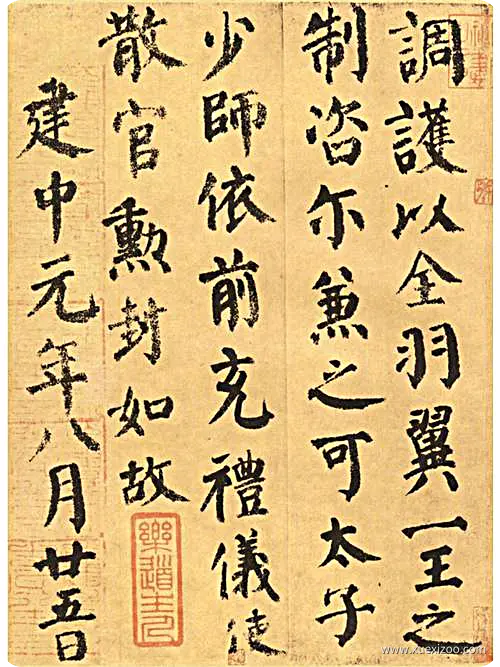 調護以全羽翼一王之
制咨尔兼之可太子
少師依前充禮儀使
散官勳封如故
建中元年八月廿五日
www.xuexizoo.com